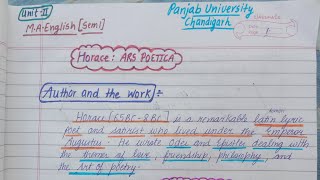 Unit-II
Panjab University
M.A-English [Sem1]
Chandigarh
Horace: ARS POETICA
Author and the work:-
Horace [65BC-8BC] is a remarkable Latin lyric
poet and satirist who lived under the Emperor
Augustus. He wrote Odes and Epistles dealing with
the themes of love, friendship, philosophy and
the Art of poetry.